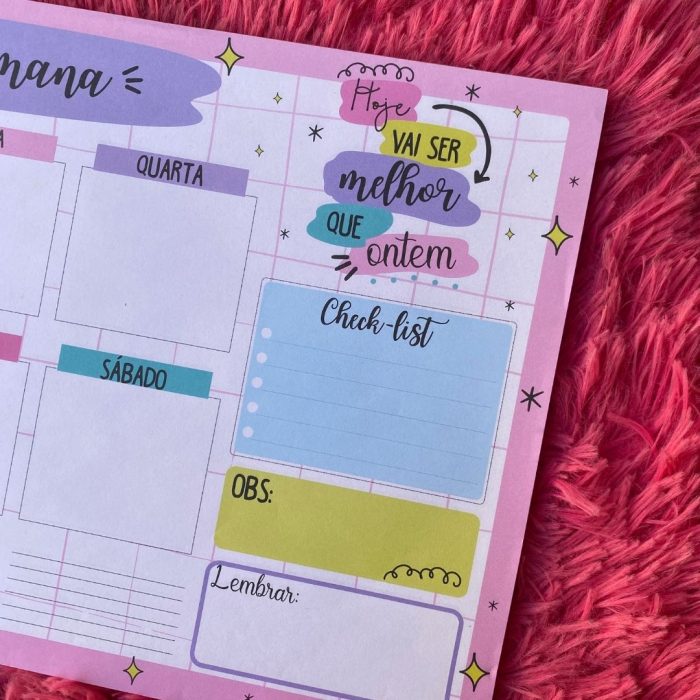 mana
Hoje
VAI SER
melhor
QUE
ontem
A
QUARTA
Check-list
SÁBADO
OBS:
Lembrar: